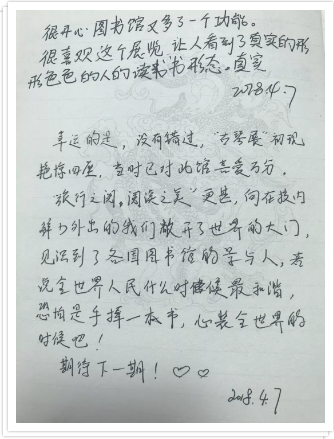 很开心图书馆又多了一个功能。
很喜欢这个展览,让人看到了真实的形
形色色的人的读书书形态。真实
2018.4.7
幸运的是,没有错过,"古琴展"初现
艳惊四座,当时已对此馆喜爱万分。
"旅行之阅,阅读之美"更甚,向在校内
鲜少外出的我们敞开了世界的大门,
见识到了各国图书馆的景与人,若
说全世界人民什么时候最和谐,
恐怕是手捧一本书,心装全世界的
时候吧!
期待下一期!♡♡
2018.4.7